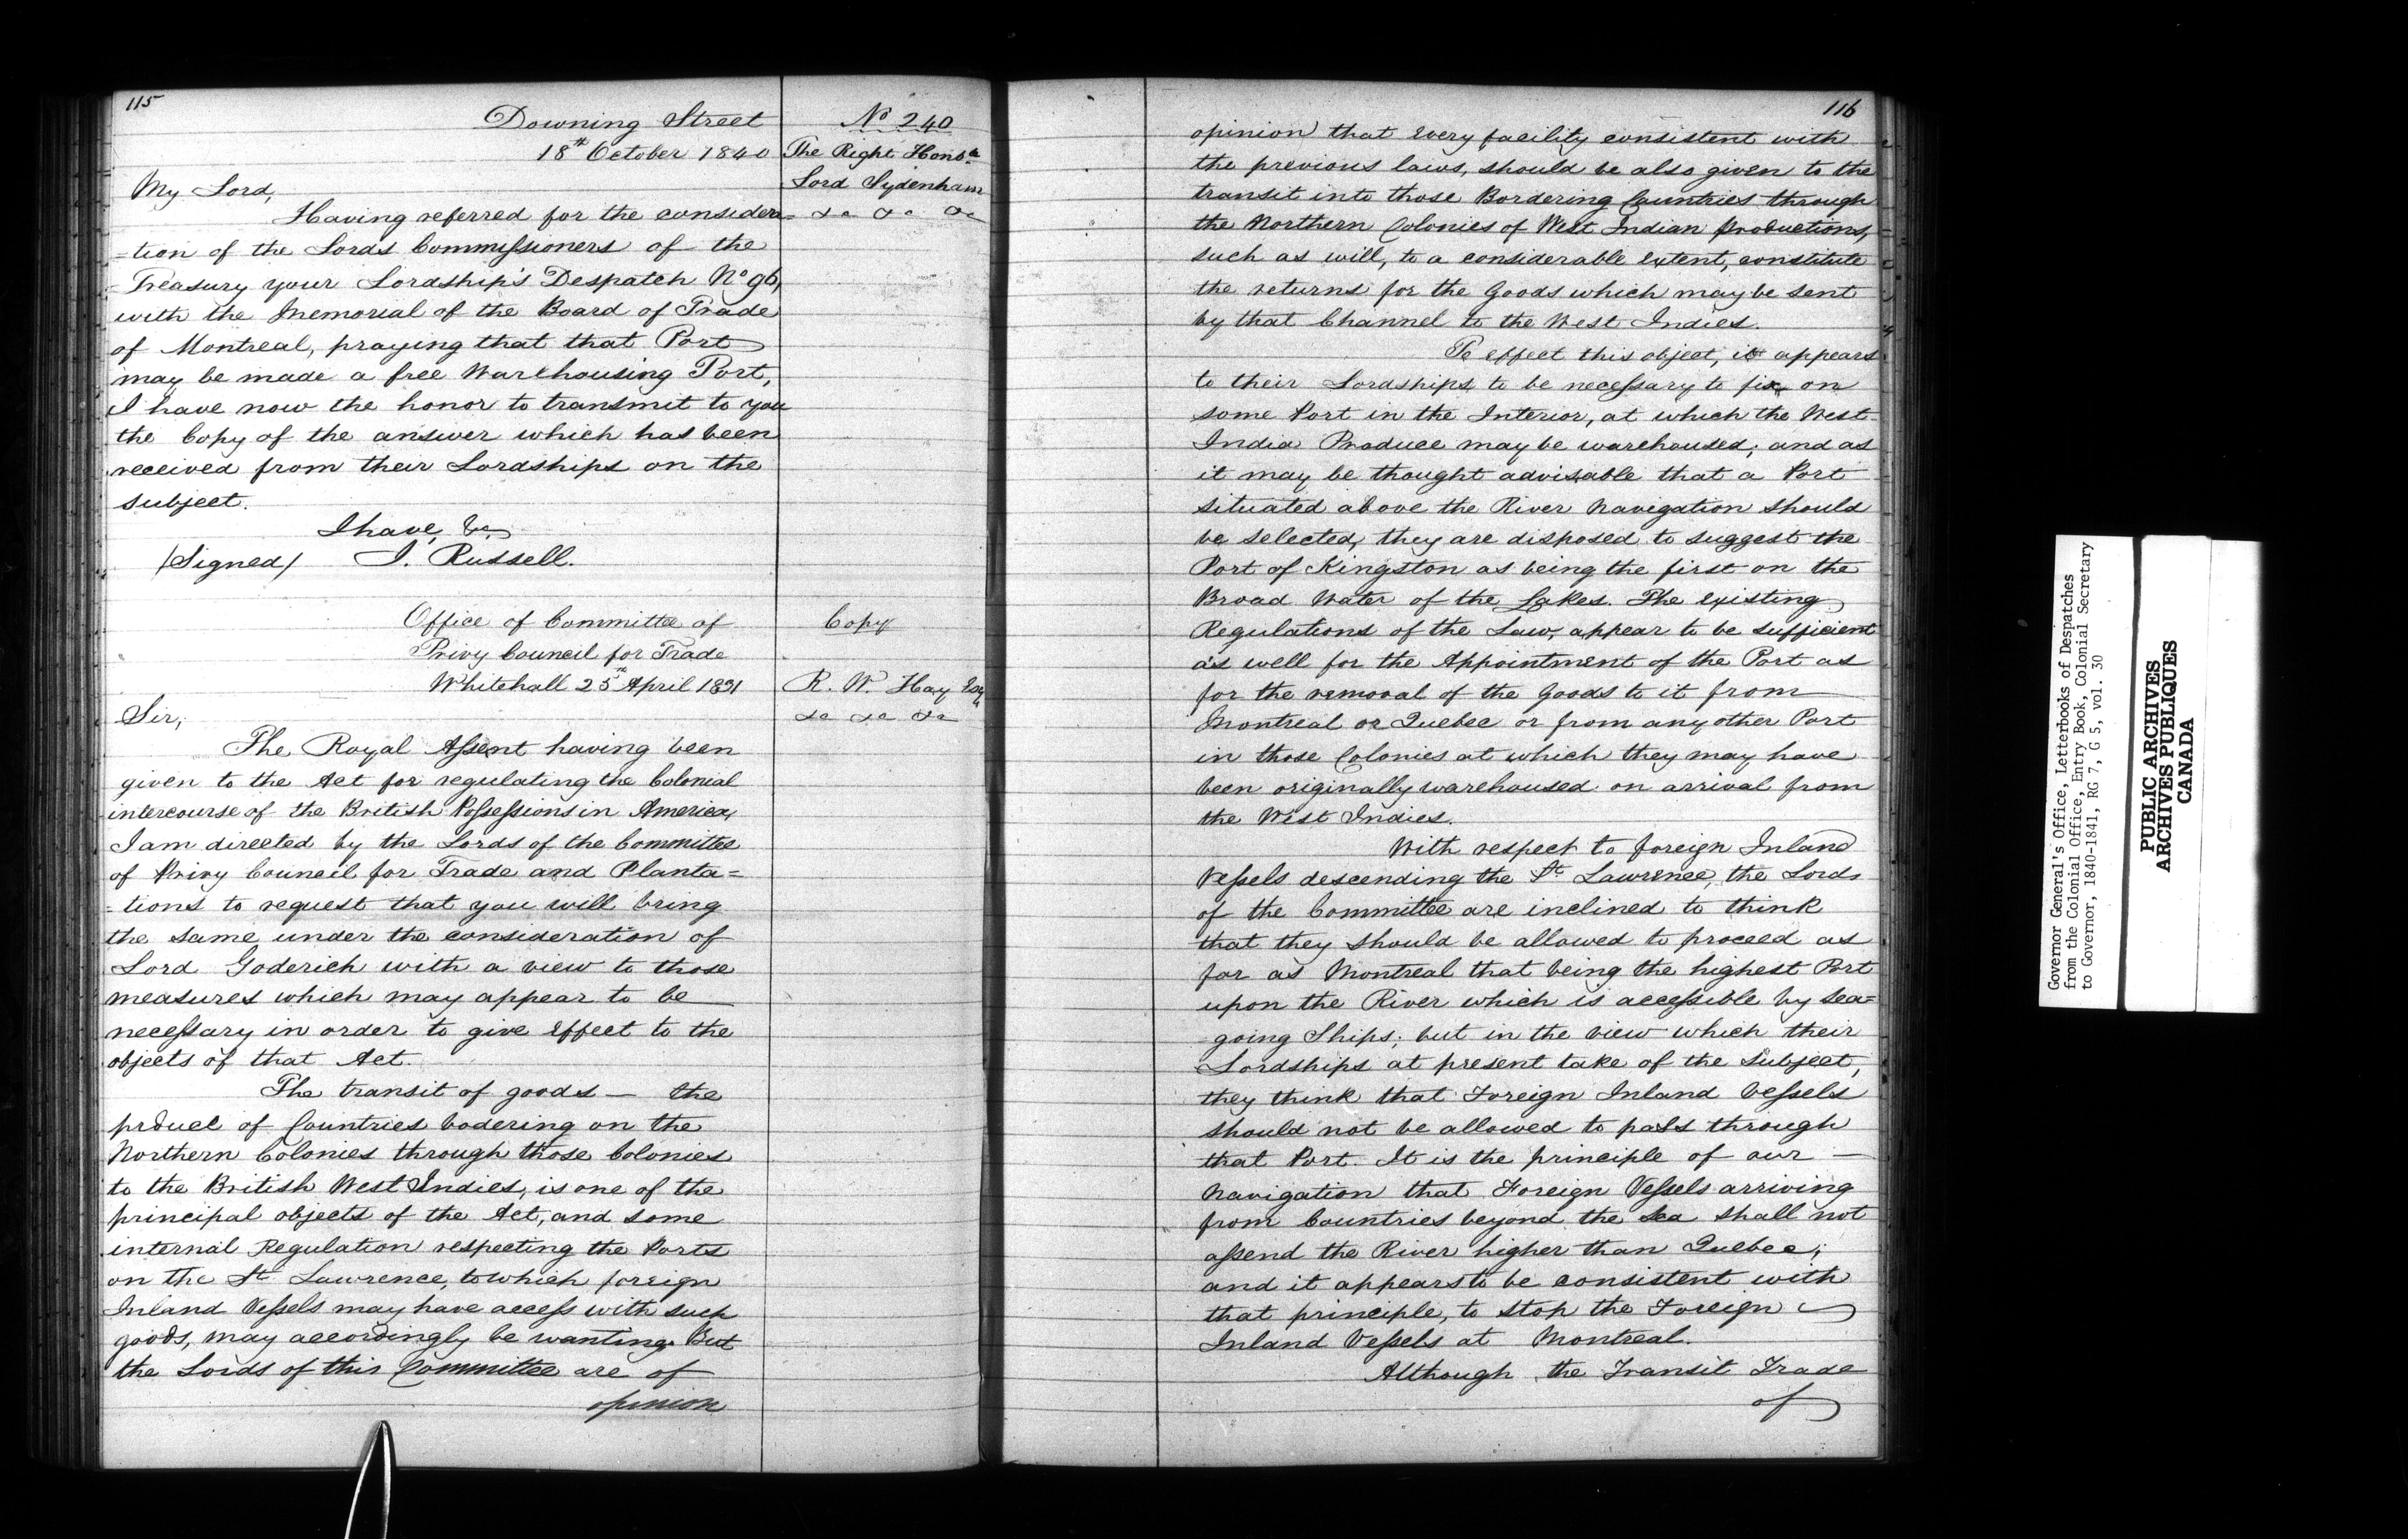 115
Downing Street
18th October 1840
No 240
The Right Honble
Lord Sydenham
&c &c &c
My Lord,
Having referred for the considera=
=tion of the Lords Commissioners of the
Treasury your Lordship's Despatch No 96,
with the Memorial of the Board of Trade
of Montreal, praying that that Port
may be made a free Warehousing Port,
I have now the honor to transmit to you
the Copy of the answer which has been
received from their Lordships on the
subject.
I have, &c
/Signed/ J. Russell.
Office of Committee of
Privy Council for Trade
Whitehall 25th April 1831
Copy
R. W. Hay Esq
&c &c &c
Sir,
The Royal Assent having been
given to the Act for regulating the Colonial
intercourse of the British Possessions in America,
I am directed by the Lords of the Committee
of Privy Council for Trade and Planta=
=tions to request that you will bring
the same under the consideration of
Lord Goderich with a view to those
measures which may appear to be
necessary in order to give effect to the
objects of that Act.
The transit of goods — the
prduce of Countries bodering on the
Northern Colonies through those Colonies
to the British West Indies, is one of the
principal objects of the Act, and some
internal Regulation respecting the Ports
on the St Lawrence, to which foreign
Inland Vessels may have access with such
goods, may accordingly be wanting. But
the Lords of this Committee are of
opinion
116
opinion that every facility consistent with
the previous laws, should be also given to the
transit into those Bordering Countries through
the Northern Colonies of West Indian productions,
such as will, to a considerable extent, constitute
the returns for the Goods which may be sent
by that Channel to the West Indies.
To effect this object, it appears
to their Lordships to be necessary to fix on
some Port in the Interior, at which the West
India Produce may be warehoused; and as
it may be thought advisable that a Port
situated above the River Navigation should
be selected, they are disposed to suggest the
Port of Kingston as being the first on the
Broad Water of the Lakes. The existing
Regulations of the Law, appear to be sufficient
as well for the Appointment of the Port as
for the removal of the Goods to it from
Montreal or Quebec or from any other Port
in those Colonies at which they may have
been originally warehoused on arrival from
the West Indies.
With respect to foreign Inland
Vessels descending the St Lawrence, the Lords
of the Committee are inclined to think
that they should be allowed to proceed as
far as Montreal that being the highest Port
upon the River which is accessible by sea=
going Ships; but in the view which their
Lordships at present take of the subject,
they think that Foreign Inland Vessels
should not be allowed to pass through
that Port. It is the principle of our —
Navigation that Foreign Vessels arriving
from Countries beyond the Sea shall not
assend the River higher than Quebec;
and it appears to be consistent with
that principle, to stop the Foreign
Inland Vessels at Montreal.
Although the Transit Trade
of
Governor General's Office, Letterbooks of Despatches
from the Colonial Office, Entry Book, Colonial Secretary
to Governor, 1840-1841, RG 7, G 5, vol. 30
PUBLIC ARCHIVES
ARCHIVES PUBLIQUES
CANADA